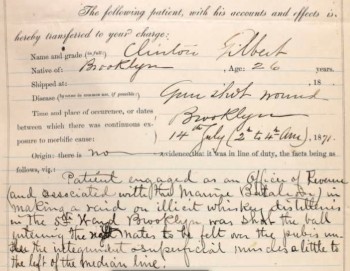 The following patient, with his accounts and effects is
hereby transferred to your charge:
Name and grade (in full) Clinton Gilbert
Native of: Brooklyn, Age: 26 years.
Shipped at: , 18
Disease Gun shot wound
Time and place of occurrence, or dates Brooklyn
between which there was continuous ex-
posure to morbific cause: 14th July (2 to 4 Am), 1871.
Origin: there is no evidence that it was in line of duty, the facts being as
follows, viz.:
Patient engaged as an Officer of Revenue
(and associated with the Marine Batal) in
making a raid on illicit whisky distilleries
in the 5th Ward Brooklyn was shot the ball
entering the nates to be felt over the pubis un-
der the integument & superficial muscles a little to
the left of the median line.